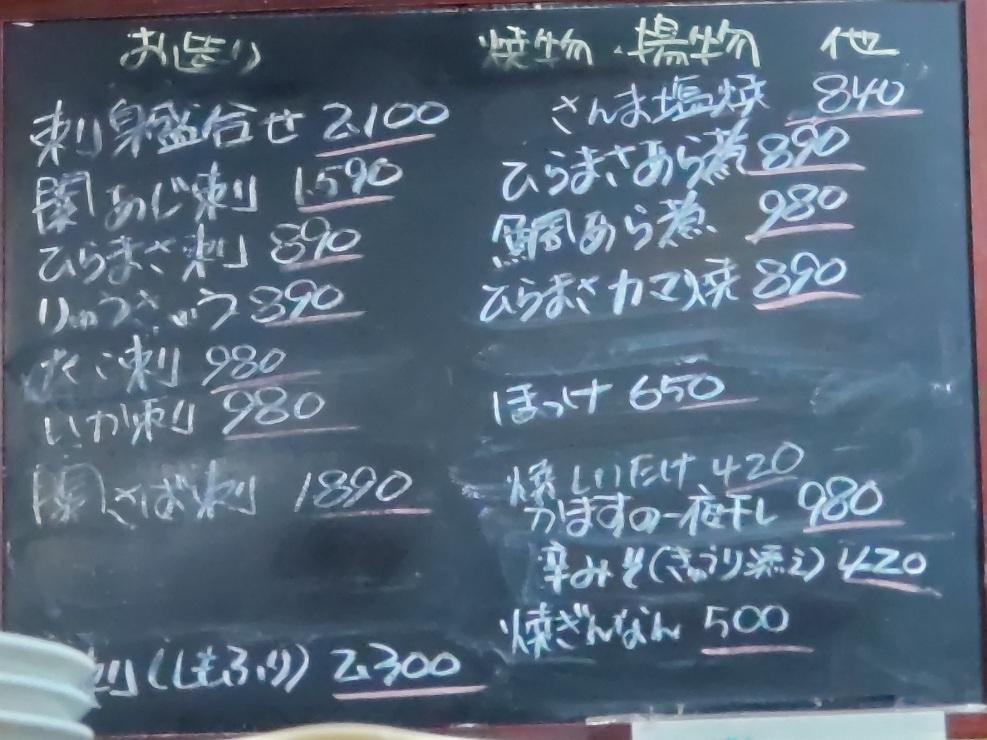 お造り
刺身盛合せ 2,100
関あじ刺 1,590
ひらまさ刺 890
りゅうきゅう 890
たこ刺 980
いか刺 980
関さば刺 1890
刺(しもふり) 2,300
焼物・揚物 他
さんま塩焼 840
ひらまさあら煮 890
鯛あら煮 980
ひらまさカマ焼 890
ほっけ 650
焼しいたけ 420
かますの一夜干し 980
辛みそ(きゅうり添え) 420
焼ぎんなん 500